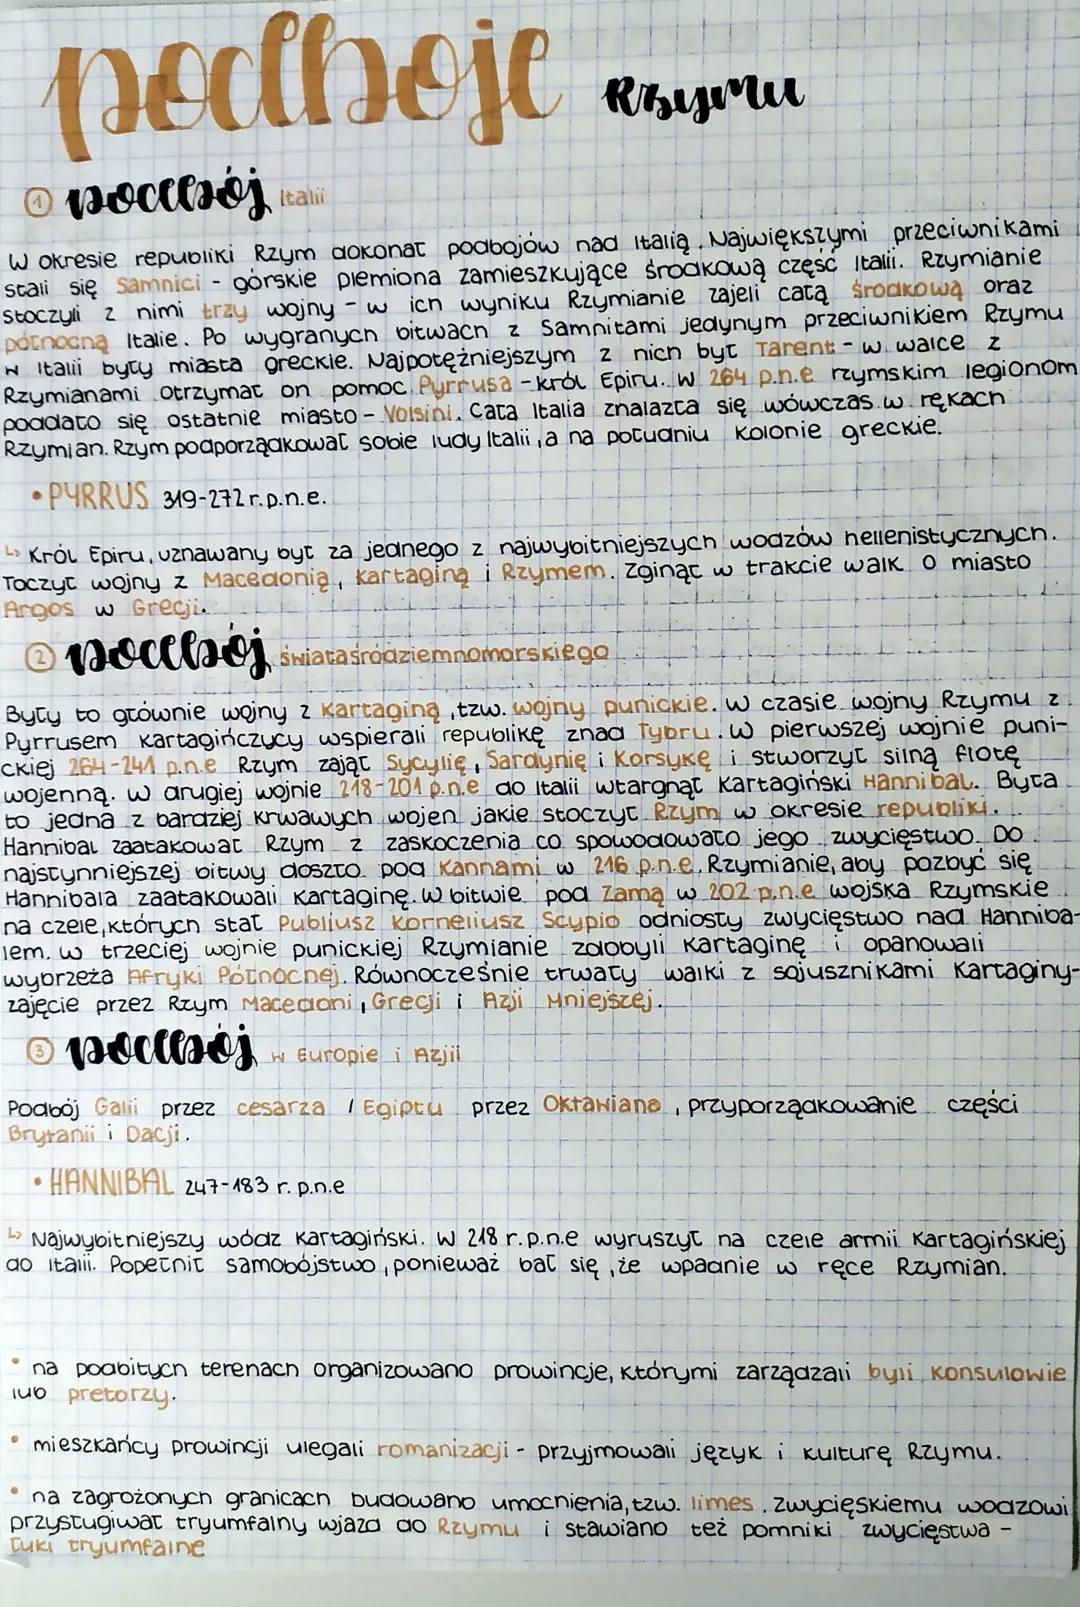 podboje Rzymu
① podbój Italii
W okresie republiki Rzym dokonał podbojów nad Italią. Największymi przeciwnikami
stali się Samnici - górskie plemiona zamieszkujące środkową część Italii. Rzymianie
stoczyli z nimi trzy wojny - w ich wyniku Rzymianie zajeli całą środkową oraz
północną Italie. Po wygranych bitwach z Samnitami jedynym przeciwnikiem Rzymu
w Italii były miasta greckie. Najpotężniejszym z nich był Tarent - w walce z
Rzymianami otrzymał on pomoc Pyrrusa - król Epiru. W 264 p.n.e rzymskim legionom
poddało się ostatnie miasto - Volsini. Cała Italia znalazła się wówczas w rękach
Rzymian. Rzym podporządkował sobie ludy Italii, a na południu kolonie greckie.
• PYRRUS 319-272 r. p.n.e.
↳ Król Epiru, uznawany był za jednego z najwybitniejszych wodzów hellenistycznych.
Toczył wojny z Macedonią, Kartaginą i Rzymem. Zginął w trakcie walk o miasto
Argos w Grecji.
② podbój świata śródziemnomorskiego
Były to głównie wojny z Kartaginą, tzw. wojny punickie. W czasie wojny Rzymu z
Pyrrusem Kartagińczycy wspierali republikę znad Tybru. W pierwszej wojnie puni-
ckiej 264-241 p.n.e Rzym zajął Sycylię, Sardynię i Korsykę i stworzył silną flotę
wojenną. W drugiej wojnie 218-201 p.n.e do Italii wtargnął Kartagiński Hannibal. Była
to jedna z bardziej krwawych wojen jakie stoczył Rzym w okresie republiki.
Hannibal zaatakował Rzym z zaskoczenia co spowodowało jego zwycięstwo. Do
najsłynniejszej bitwy doszło pod Kannami w 216 p.n.e. Rzymianie, aby pozbyć się
Hannibala zaatakowali Kartaginę. W bitwie pod Zamą w 202 p.n.e wojska Rzymskie
na czele, których stał Publiusz Korneliusz Scypio odniosły zwycięstwo nad Hanniba-
lem. W trzeciej wojnie punickiej Rzymianie zdobyli Kartaginę i opanowali
wybrzeża Afryki Północnej. Równocześnie trwały walki z sojusznikami Kartaginy-
zajęcie przez Rzym Macedoni, Grecji i Azji Mniejszej.
③ podbój w Europie i Azjii
Podbój Galii przez cesarza / Egiptu przez Oktawiana, przyporządkowanie części
Brytanii i Dacji.
• HANNIBAL 247-183 r. p.n.e
↳ Najwybitniejszy wódz Kartagiński. W 218 r. p.n.e wyruszył na czele armii Kartagińskiej
do Italii. Popełnił samobójstwo, ponieważ bał się, że wpadnie w ręce Rzymian.
• na podbitych terenach organizowano prowincje, którymi zarządzali byli konsulowie
lub pretorzy.
• mieszkańcy prowincji ulegali romanizacji - przyjmowali język i kulturę Rzymu.
• na zagrożonych granicach budowano umocnienia, tzw. limes. Zwycięskiemu wodzowi
przysługiwał tryumfalny wjazd do Rzymu i stawiano też pomniki zwycięstwa -
łuki tryumfalne